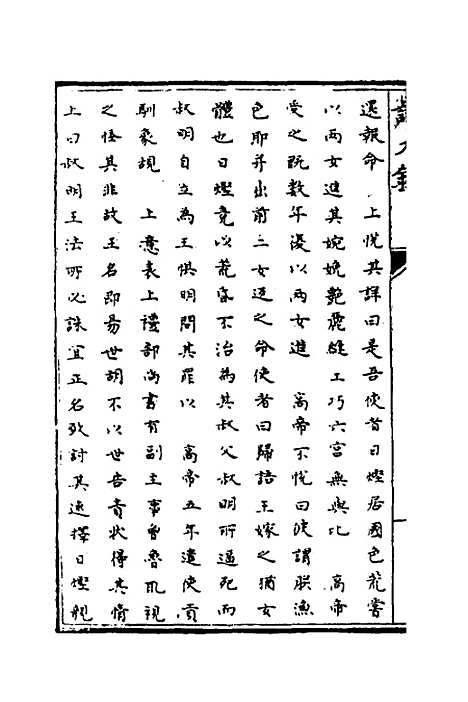 還報命　上悅其詳曰是吾使者日熞居國色荒嘗
以兩女進其婉娩艷麗雖工巧六宮無與比　高帝
受之旣數年復以兩女進　高帝不悅曰使謂朕漁
色耶幷出前二女返之命使者曰歸語王嫁之猶女
體也日熞竟以荒昏不治為其叔父叔明所逼死而
叔明自立為王懼明問其罪以　高帝五年遣使貢
馴象覘　上意表上禮部尚書有副主事曾魯取視
之怪其非故王名即易世胡不以世告責狀得其情
上曰叔明王法所必誅宜正名致討其速擇日熞親